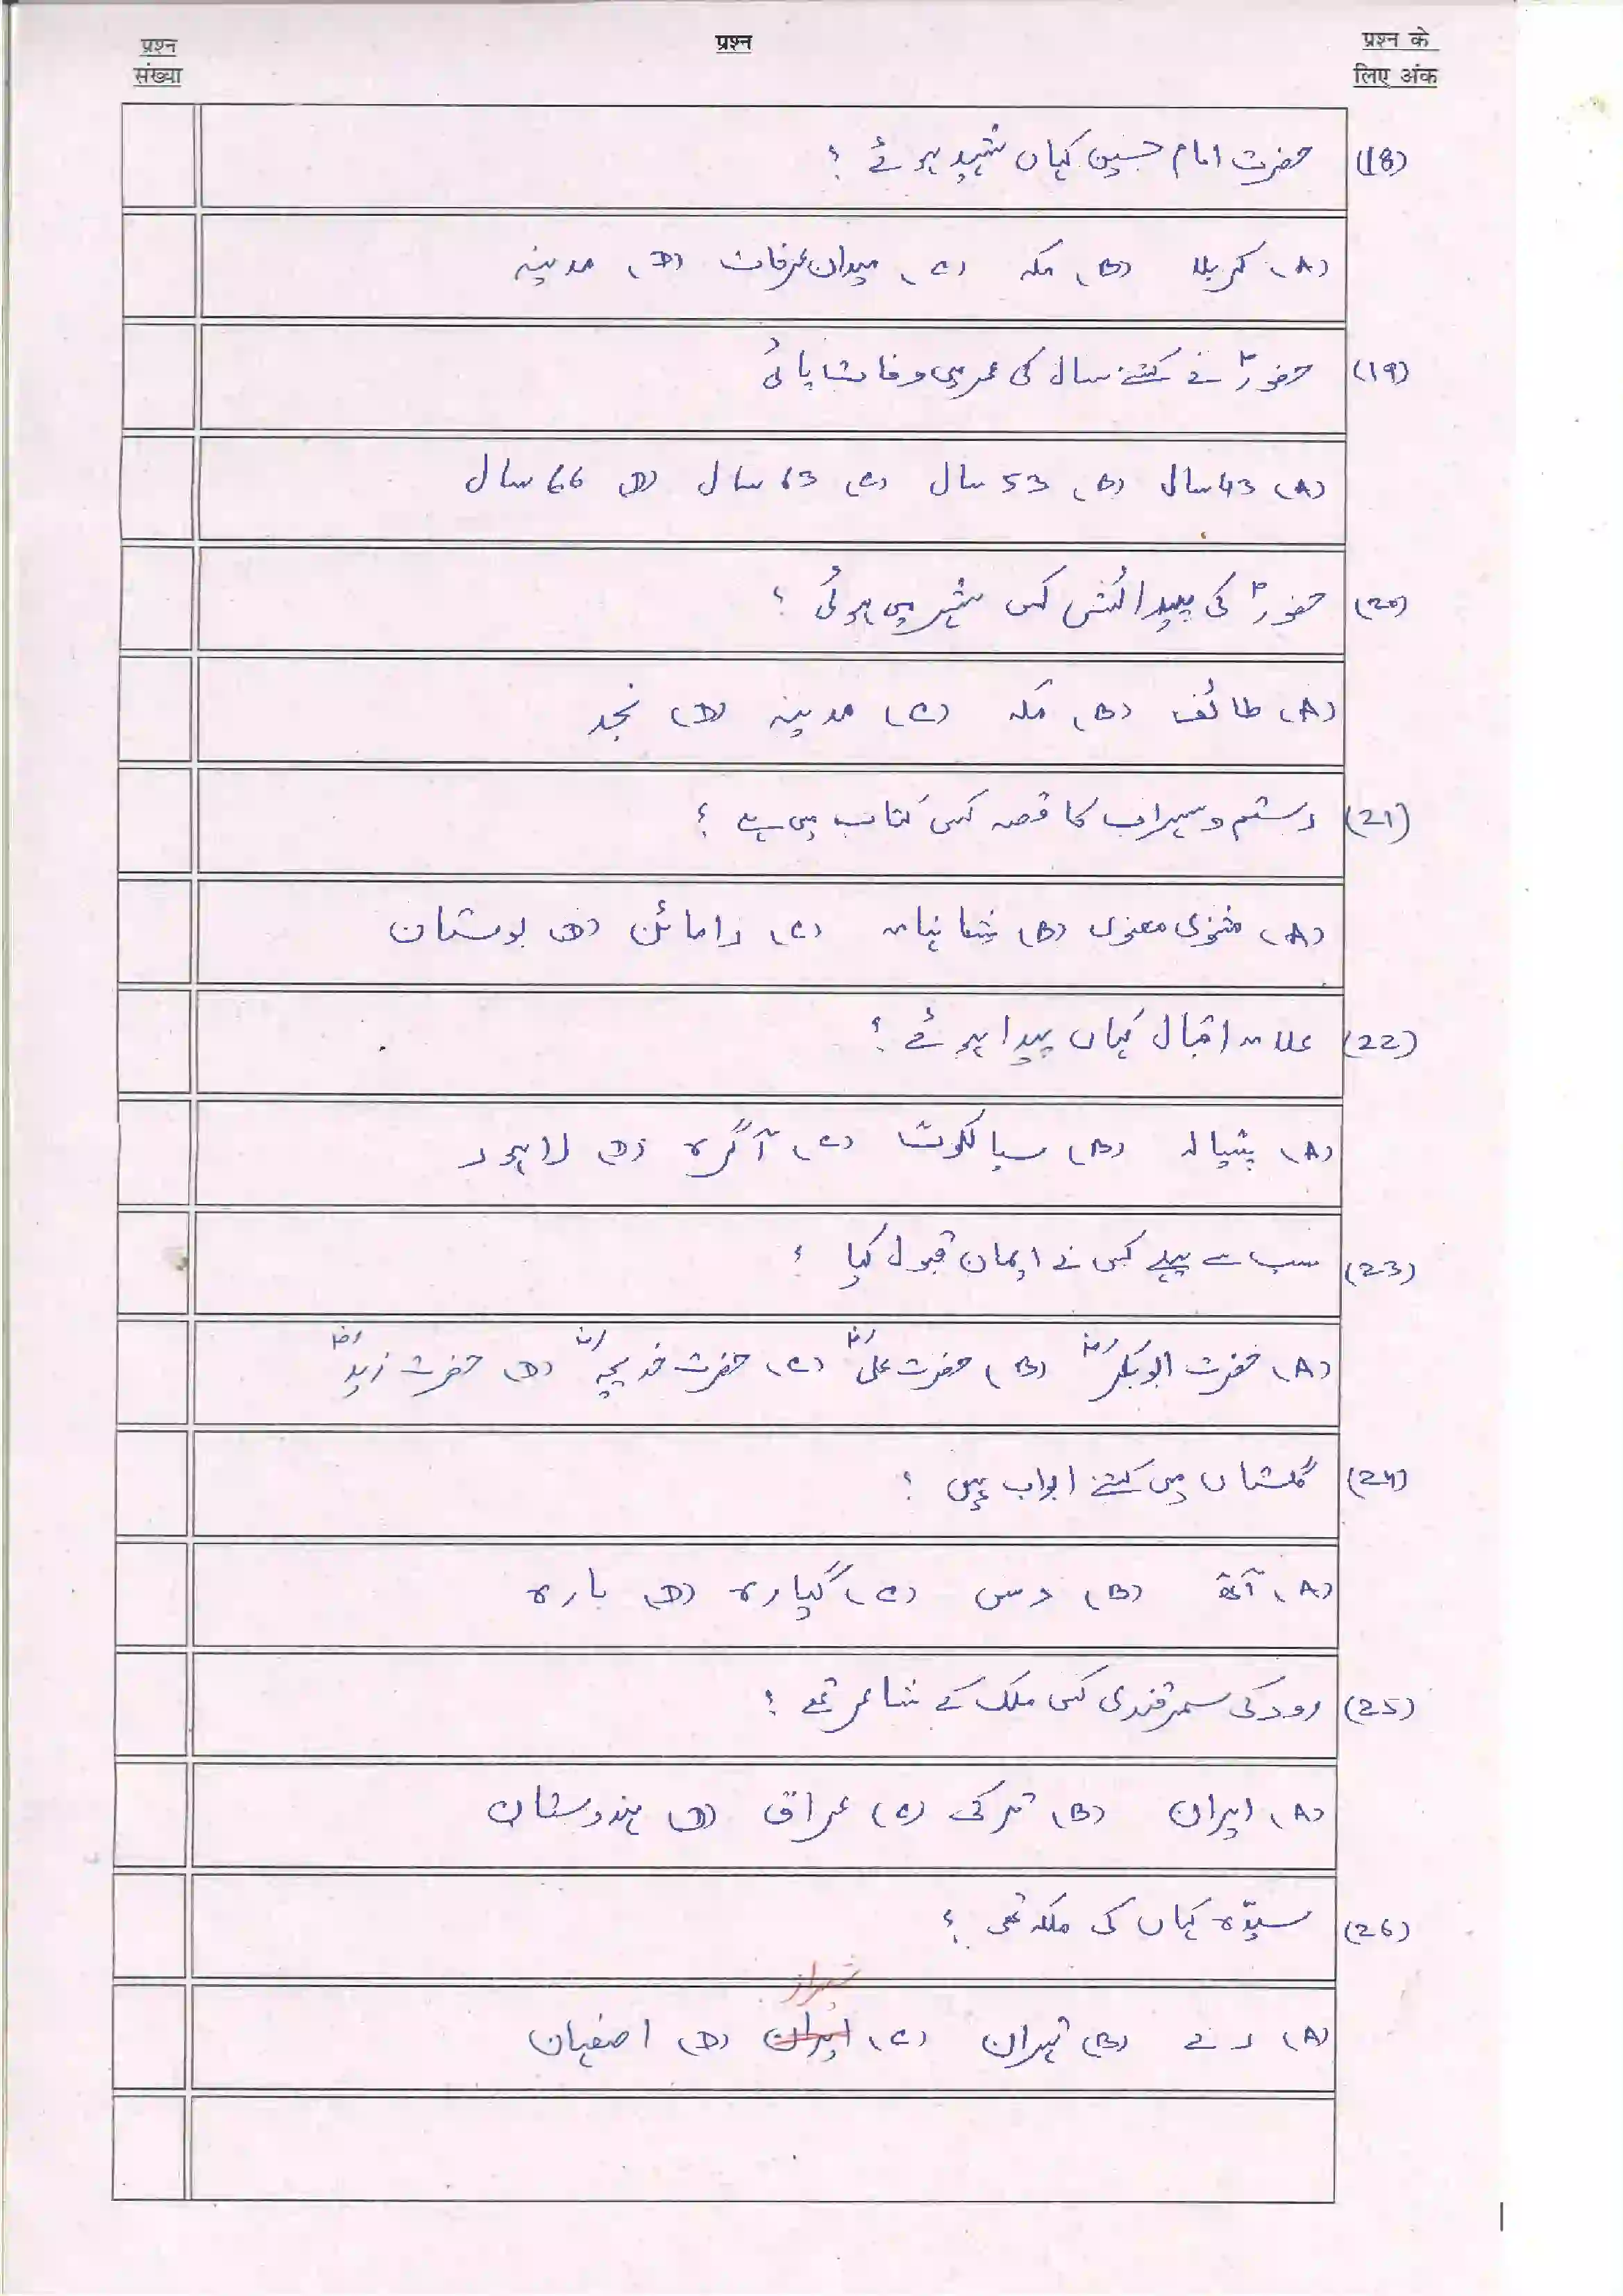 प्रश्न संख्या
प्रश्न
प्रश्न के लिए अंक
(18) حضرت امام حسین کہاں شہید ہوئے ؟
(A) کربلا (B) مکہ (C) میدان عرفات (D) مدینہ
(19) حضورؐ نے کتنے سال کی عمر میں وفات پائی
(A) 43 سال (B) 53 سال (C) 63 سال (D) 66 سال
(20) حضورؐ کی پیدائش کس شہر میں ہوئی ؟
(A) طائف (B) مکہ (C) مدینہ (D) نجد
(21) رستم و سہراب کا قصہ کس کتاب میں ہے ؟
(A) مثنوی معنوی (B) شاہنامہ (C) رامائن (D) بوستان
(22) علامہ اقبال کہاں پیدا ہوئے ؟
(A) پٹیالہ (B) سیالکوٹ (C) آگرہ (D) لاہور
(23) سب سے پہلے کس نے ایمان قبول کیا ؟
(A) حضرت ابوبکرؓ (B) حضرت علیؓ (C) حضرت خدیجہؓ (D) حضرت زیدؓ
(24) گلستاں میں کتنے ابواب ہیں ؟
(A) آٹھ (B) دس (C) گیارہ (D) بارہ
(25) رودکی سمرقندی کس ملک کے شاعر تھے ؟
(A) ایران (B) ترکی (C) عراق (D) ہندوستان
(26) سیدّہ کہاں کی ملکہ تھی ؟
شیراز
(A) رے (B) تہران (C) ایران (D) اصفہان